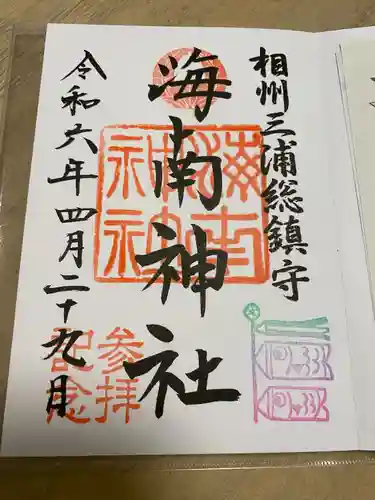 相州三浦総鎮守
海南神社
海南神社
令和六年四月二十九月
参拝
記念